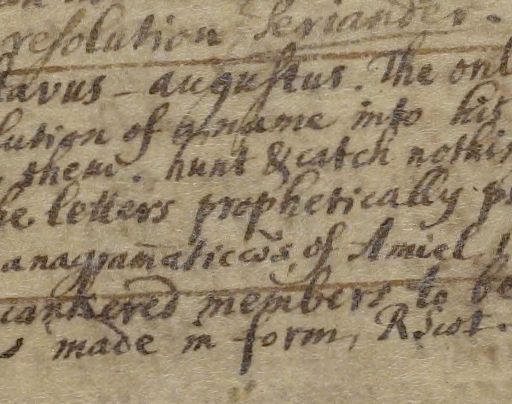 resolution, Periander.
lavus - augustus. The onl
lution of a name into his
them. hunt & catch nothin
he letters prophetically pl
anagram̄aticōs, of Amiel,
cankered members to be
s made in form, R Scot.